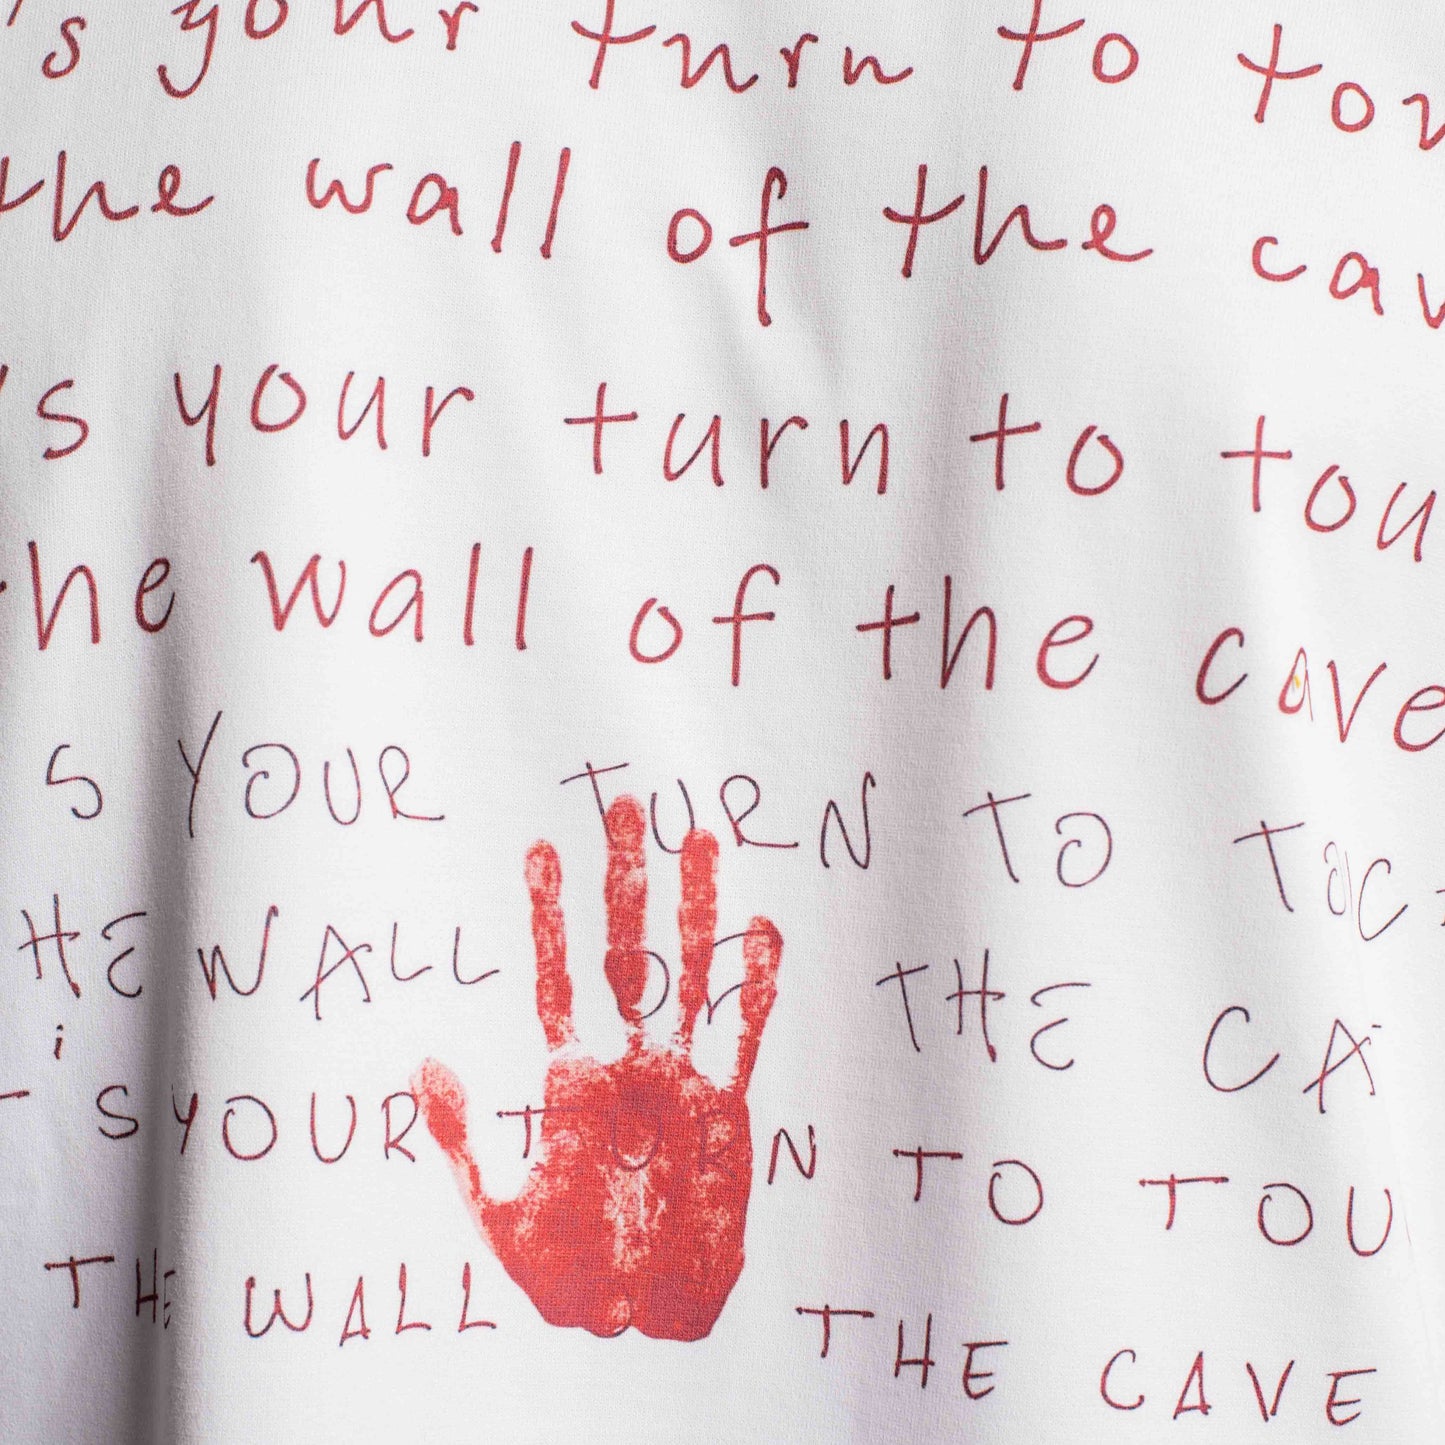 's your turn to tou
the wall of the cav
's your turn to tou
he wall of the cave
S YOUR TURN TO TOC
HE WALL OF THE CA
i
T S YOUR TURN TO TOU
THE WALL THE CAVE